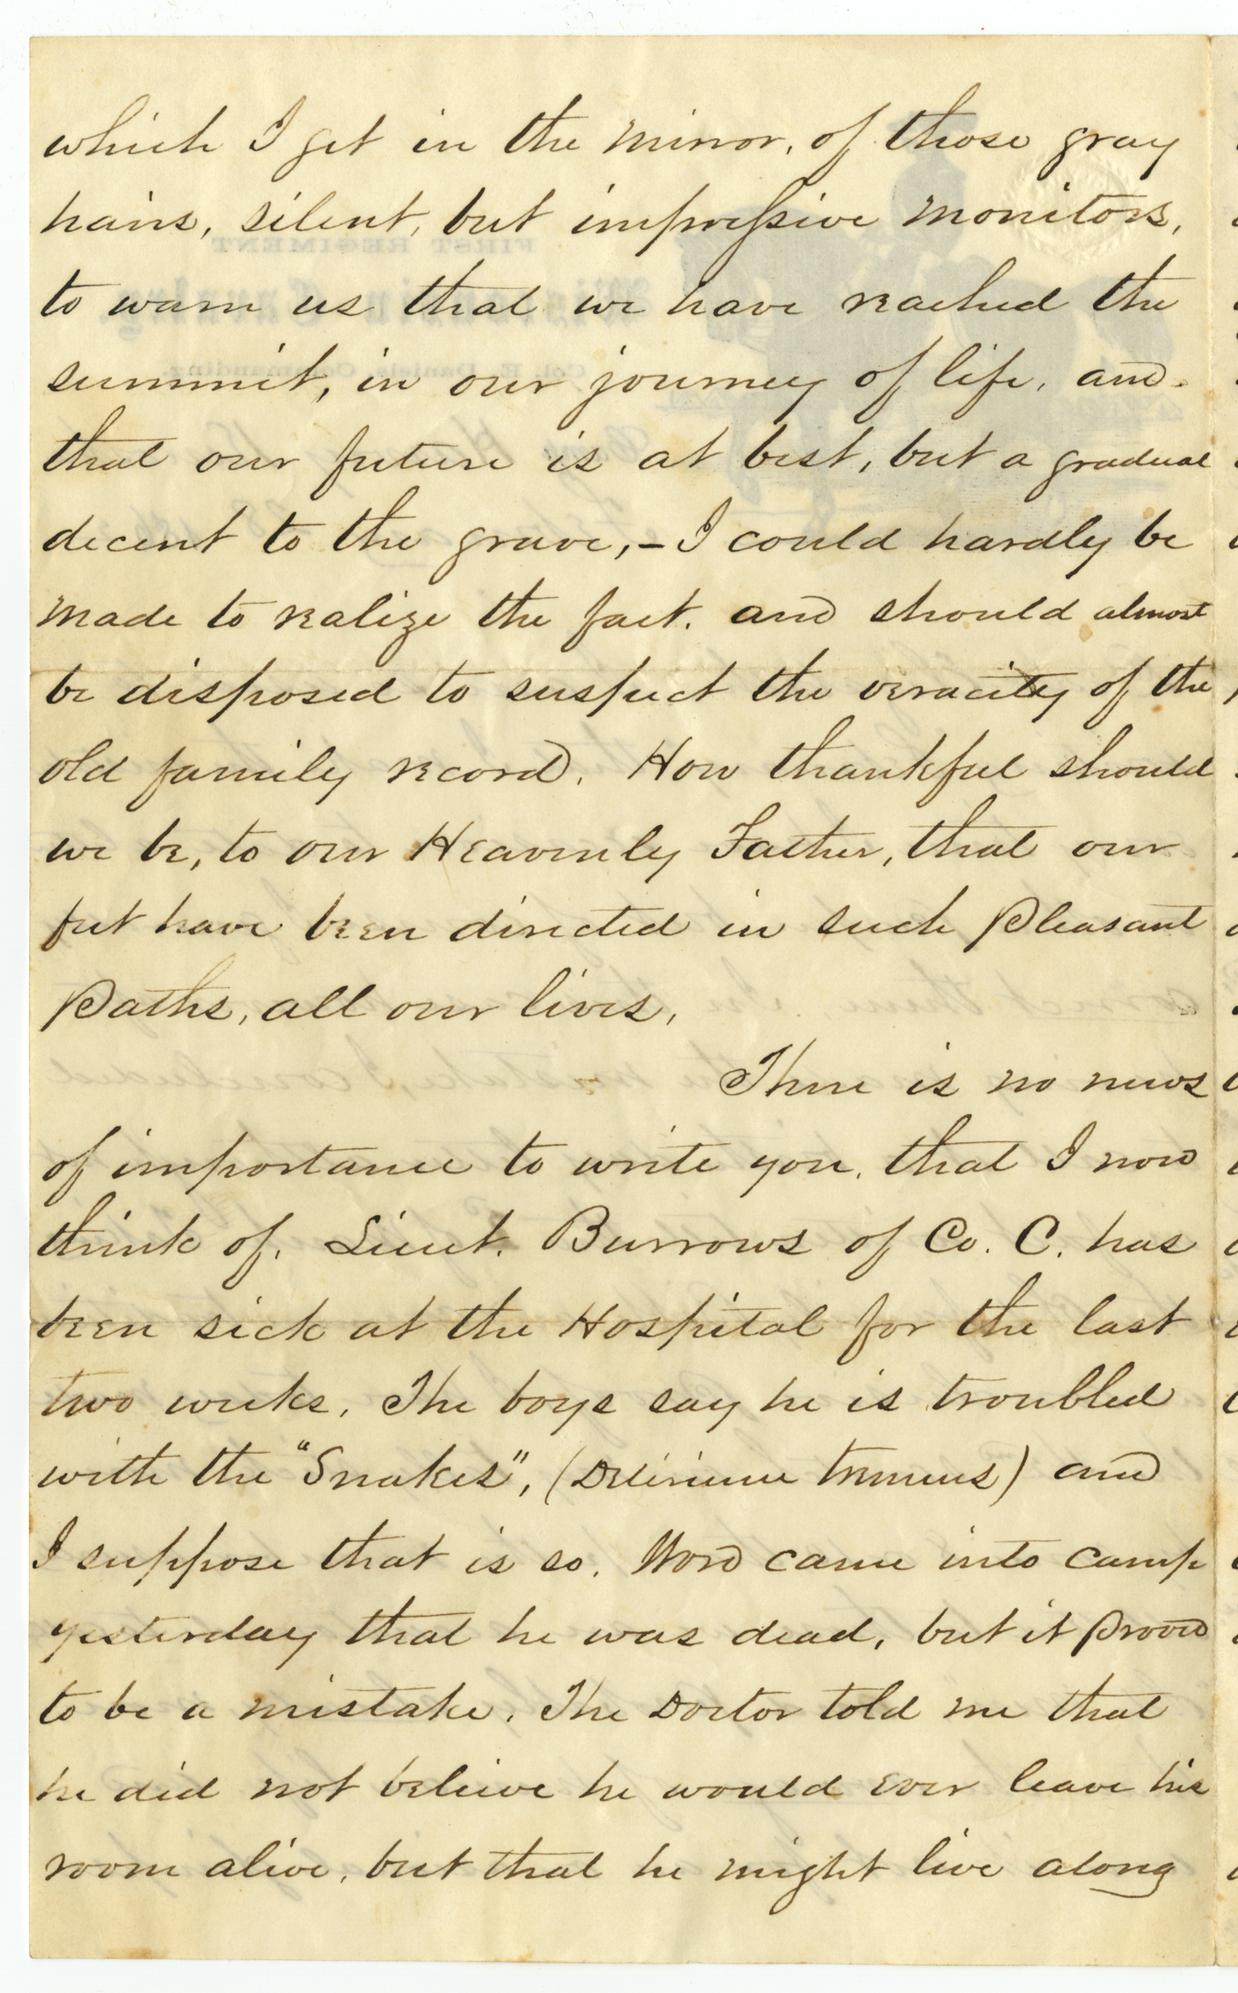 which I get in the mirror, of those gray
hairs, silent, but impressive monitors,
to warn us that we have reached the
summit, in our journey of life, and
that our future is at best, but a gradual
decent to the grave,- I could hardly be
made to realize the fact. and should almost
be disposed to suspect the veracity of the
old family record. How thankful should
we be, to our Heavenly Father, that our
feet have been directed in such Pleasant
Paths, all our lives,
There is no news
of importance to write you, that I now
think of. Lieut. Burrows of Co. C. has
been sick at the Hospital for the last
two weeks. The boys say he is troubled
with the "Snakes", (Delirium tremens) and
I suppose that is so. Word came into camp
yesterday that he was dead, but it proved
to be a mistake. The Doctor told me that
he did not believe he would ever leave his
room alive, but that he might live along